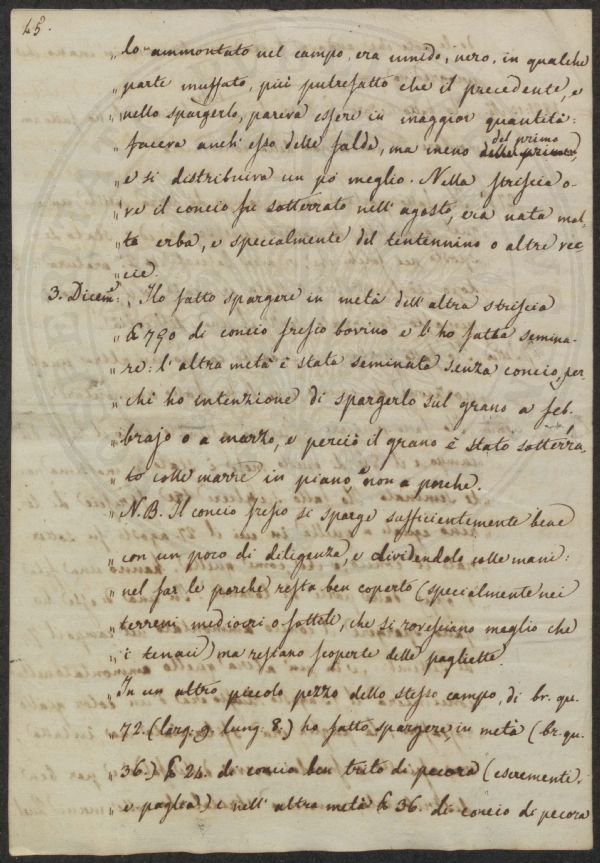 45.
„ lo ammontato nel campo, era umido, nero, in qualche
„ parte muffato, più putrefatto che il precedente, e
„ nello spargerlo, pareva essere in maggior quantità:
„ faceva anch'esso delle falde, ma meno del primo
„ e si distribuiva un pò meglio. Nella striscia o-
„ ve il concio fu sotterrato nell'agosto, era nata mol-
„ ta erba, e specialmente del tentennino o altre vec-
„ cie.
3. Dicem: „ Ho fatto spargere in metà dell'altra striscia
„ ℔ 790 di concio fresco bovino e l'ho fatta semina-
„ re: l'altra metà è stata seminata senza concio, per-
„ chi ho intenzione di spargerlo sul grano a feb-
„ brajo o a marzo, e perciò il grano è stato sotterra-
„ to colle marre in piano e non a porche.
„ N.B. Il concio fresco si sparge sufficientemente bene
„ con un poco di diligenza, e dividendolo colle mani:
„ nel far le porche resta ben coperto (specialmente nei
„ terreni mediocri o sottili, che si rovesciano meglio che
„ i tenaci) ma restano scoperte delle pagliette.
„ In un altro piccolo pezzo dello stesso campo, di br. qu.
„ 72 (larg: 9. lung: 8.) ho fatto spargere in metà (br. qu.
„ 36.) ℔ 24. di concio ben trito di pecora (escrementi
„ e paglia) e nell'altra metà ℔ 36. di concio di pecora